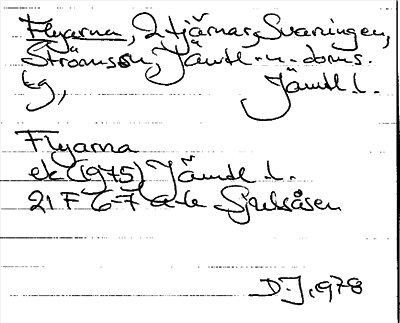 Flyarna, 2 tjärnar, Svaningen,
Ströms sn, Jämtl. n. doms.
tg, Jämtl. l.
Flyarna
ek (1975) Jämtl. l.
21 F 6-7 a-b Sjulsåsen
D.J. 1978